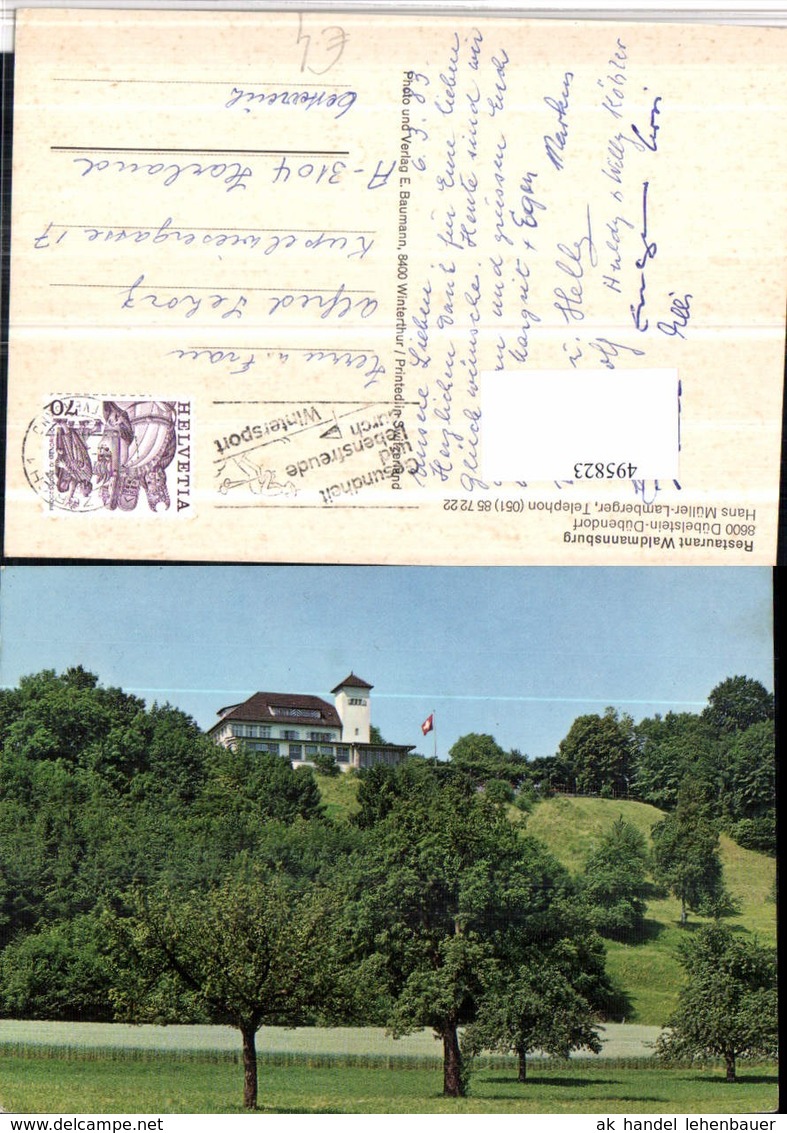 Restaurant Waldmannsburg
8600 Dübelstein-Dübendorf
Hans Müller-Lamberger, Telephon (051) 85 72 22
6.3.85.
Unsere Lieben
Herzlichen Dank für Eure lieben
Glückwünsche. Heute sind wir
und grüssen Euch
Margrit + Egon Markus
u. Helly
Huldy u Willy Köhler
Photo und Verlag E. Baumann, 8400 Winterthur / Printed in Switzerland
Gesundheit
und
Lebensfreude
durch
Wintersport
HELVETIA
70
Herrn u. Frau
Alfred
Kupelwiesergasse 17
A-3104 Harland
Österreich
€4
495823
ak handel lehenbauer